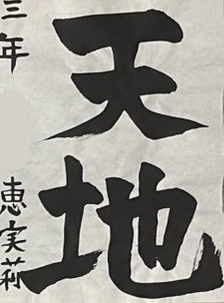 天地
三年 恵実莉